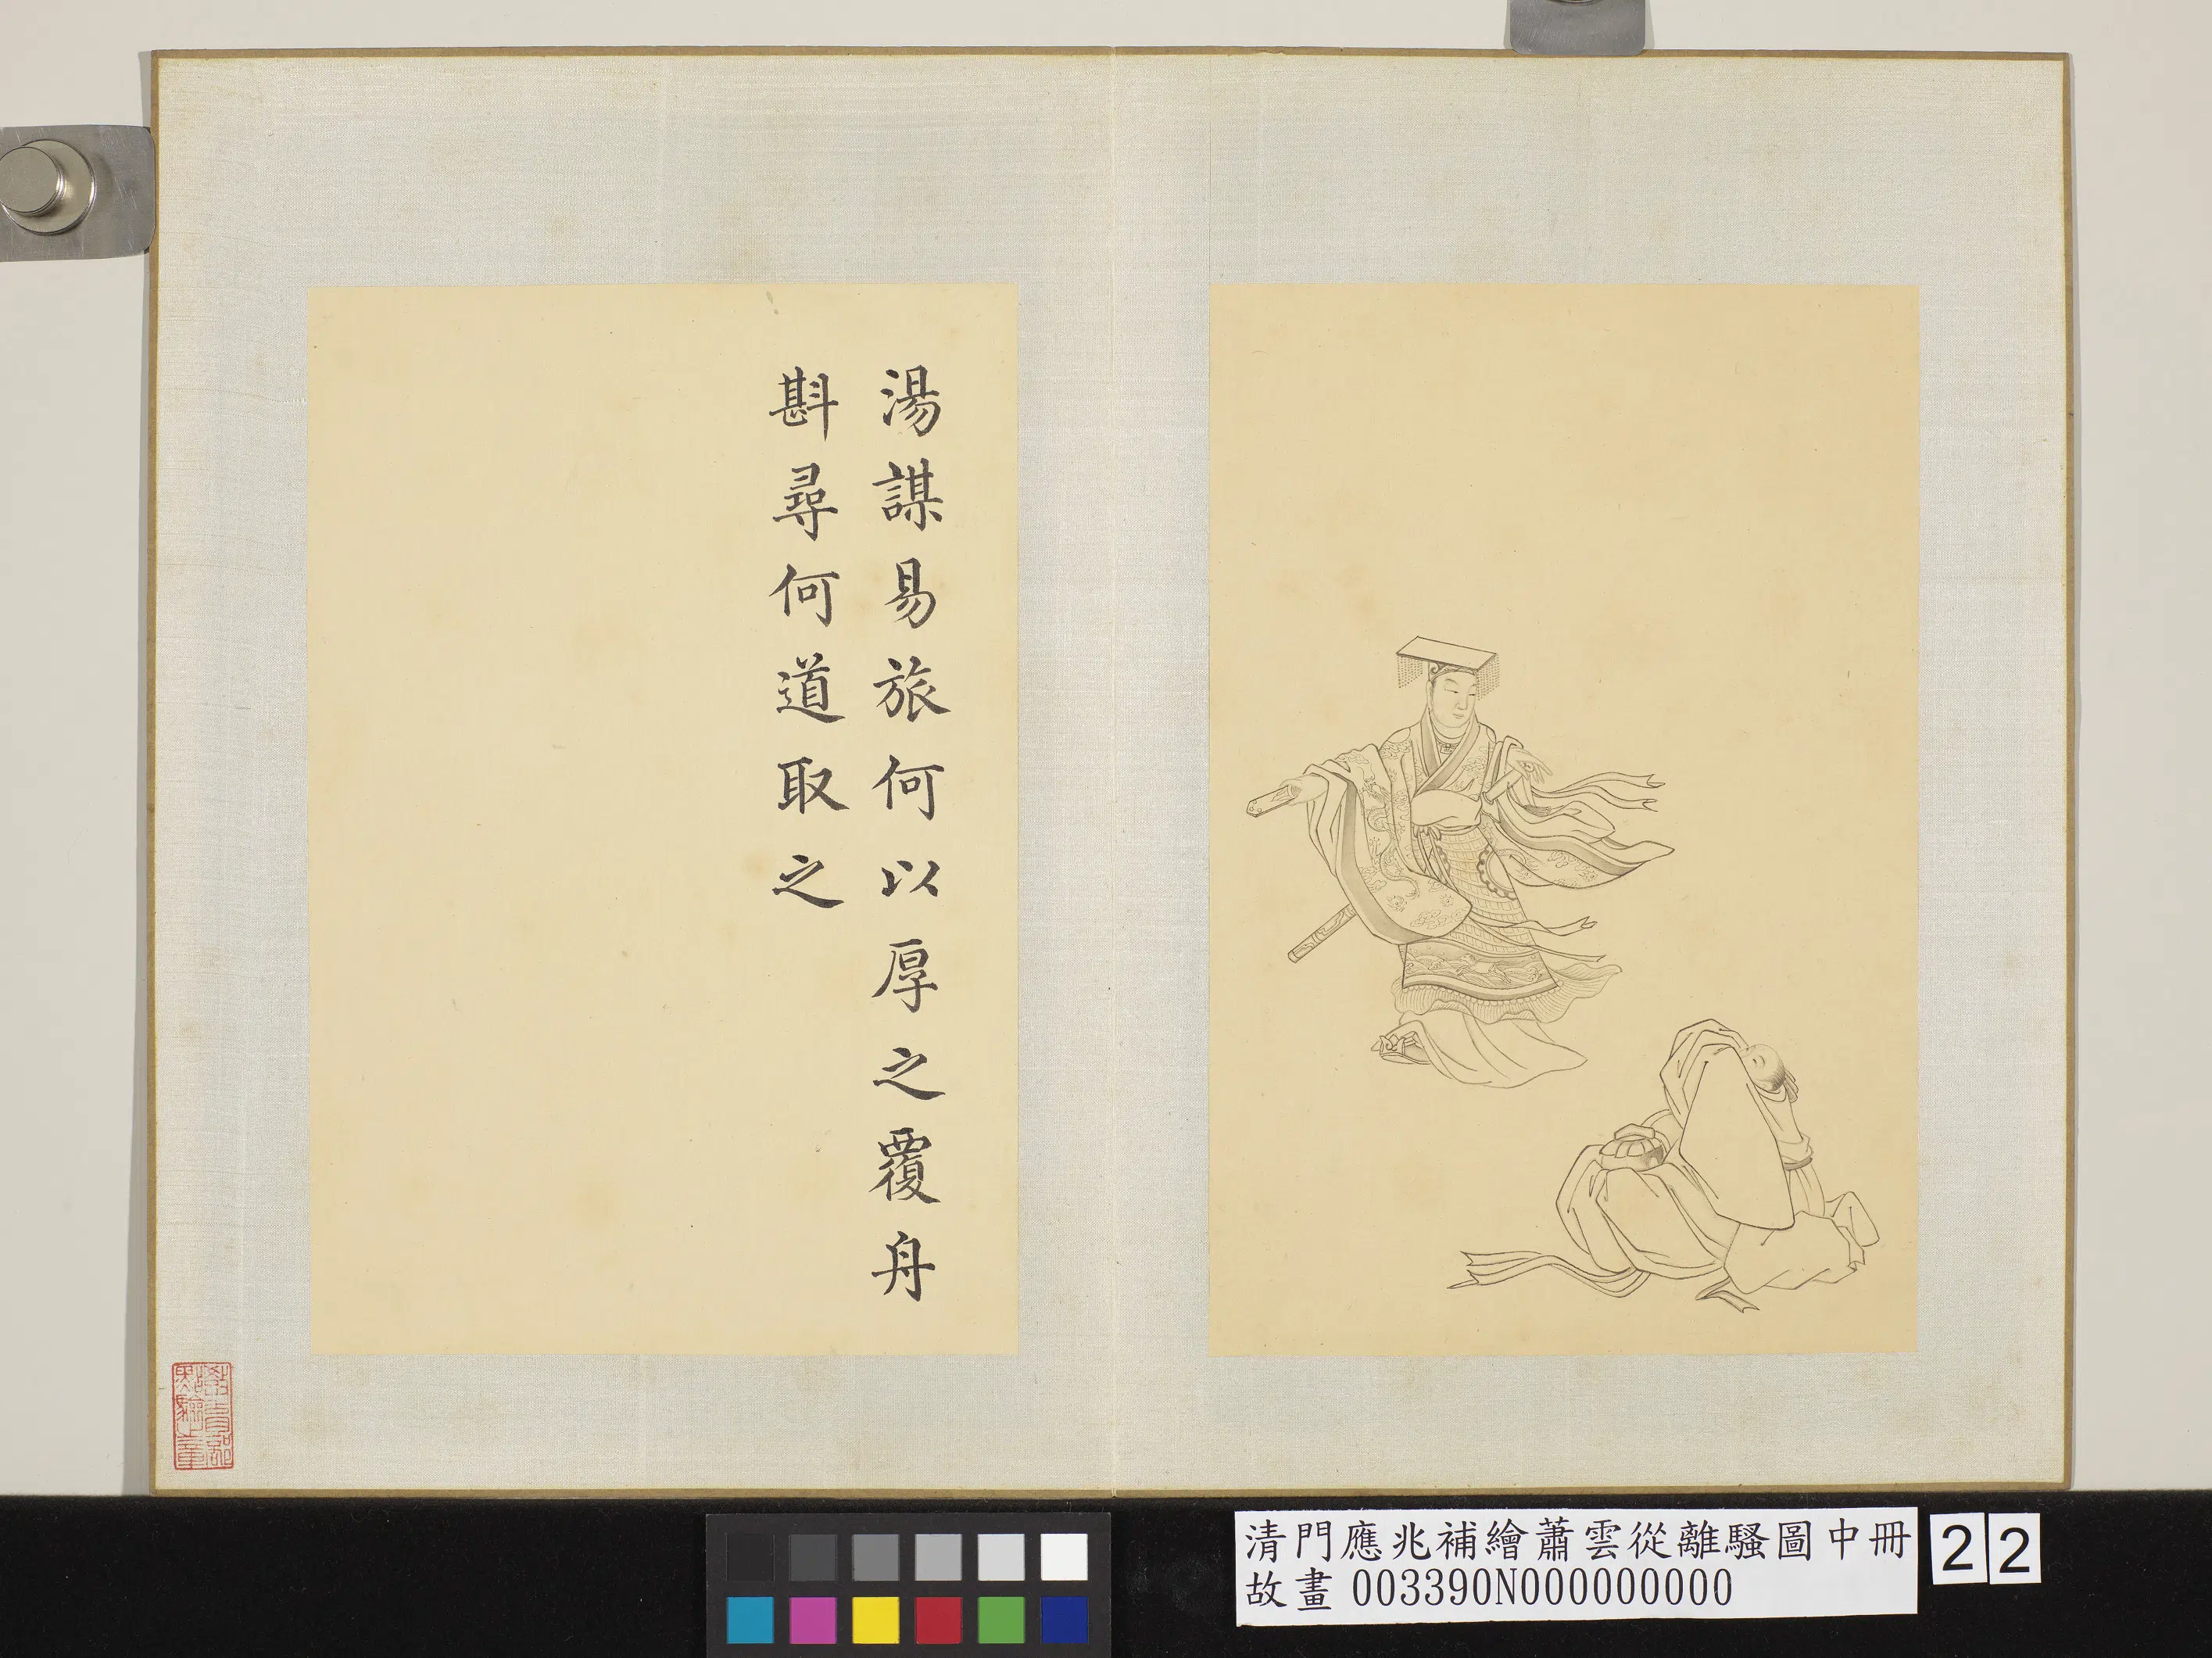 湯謀易旅何以厚之覆舟
斟尋何道取之
教育部
點驗之章
清門應兆補繪蕭雲從離騷圖中冊
故畫 003390N000000000
22